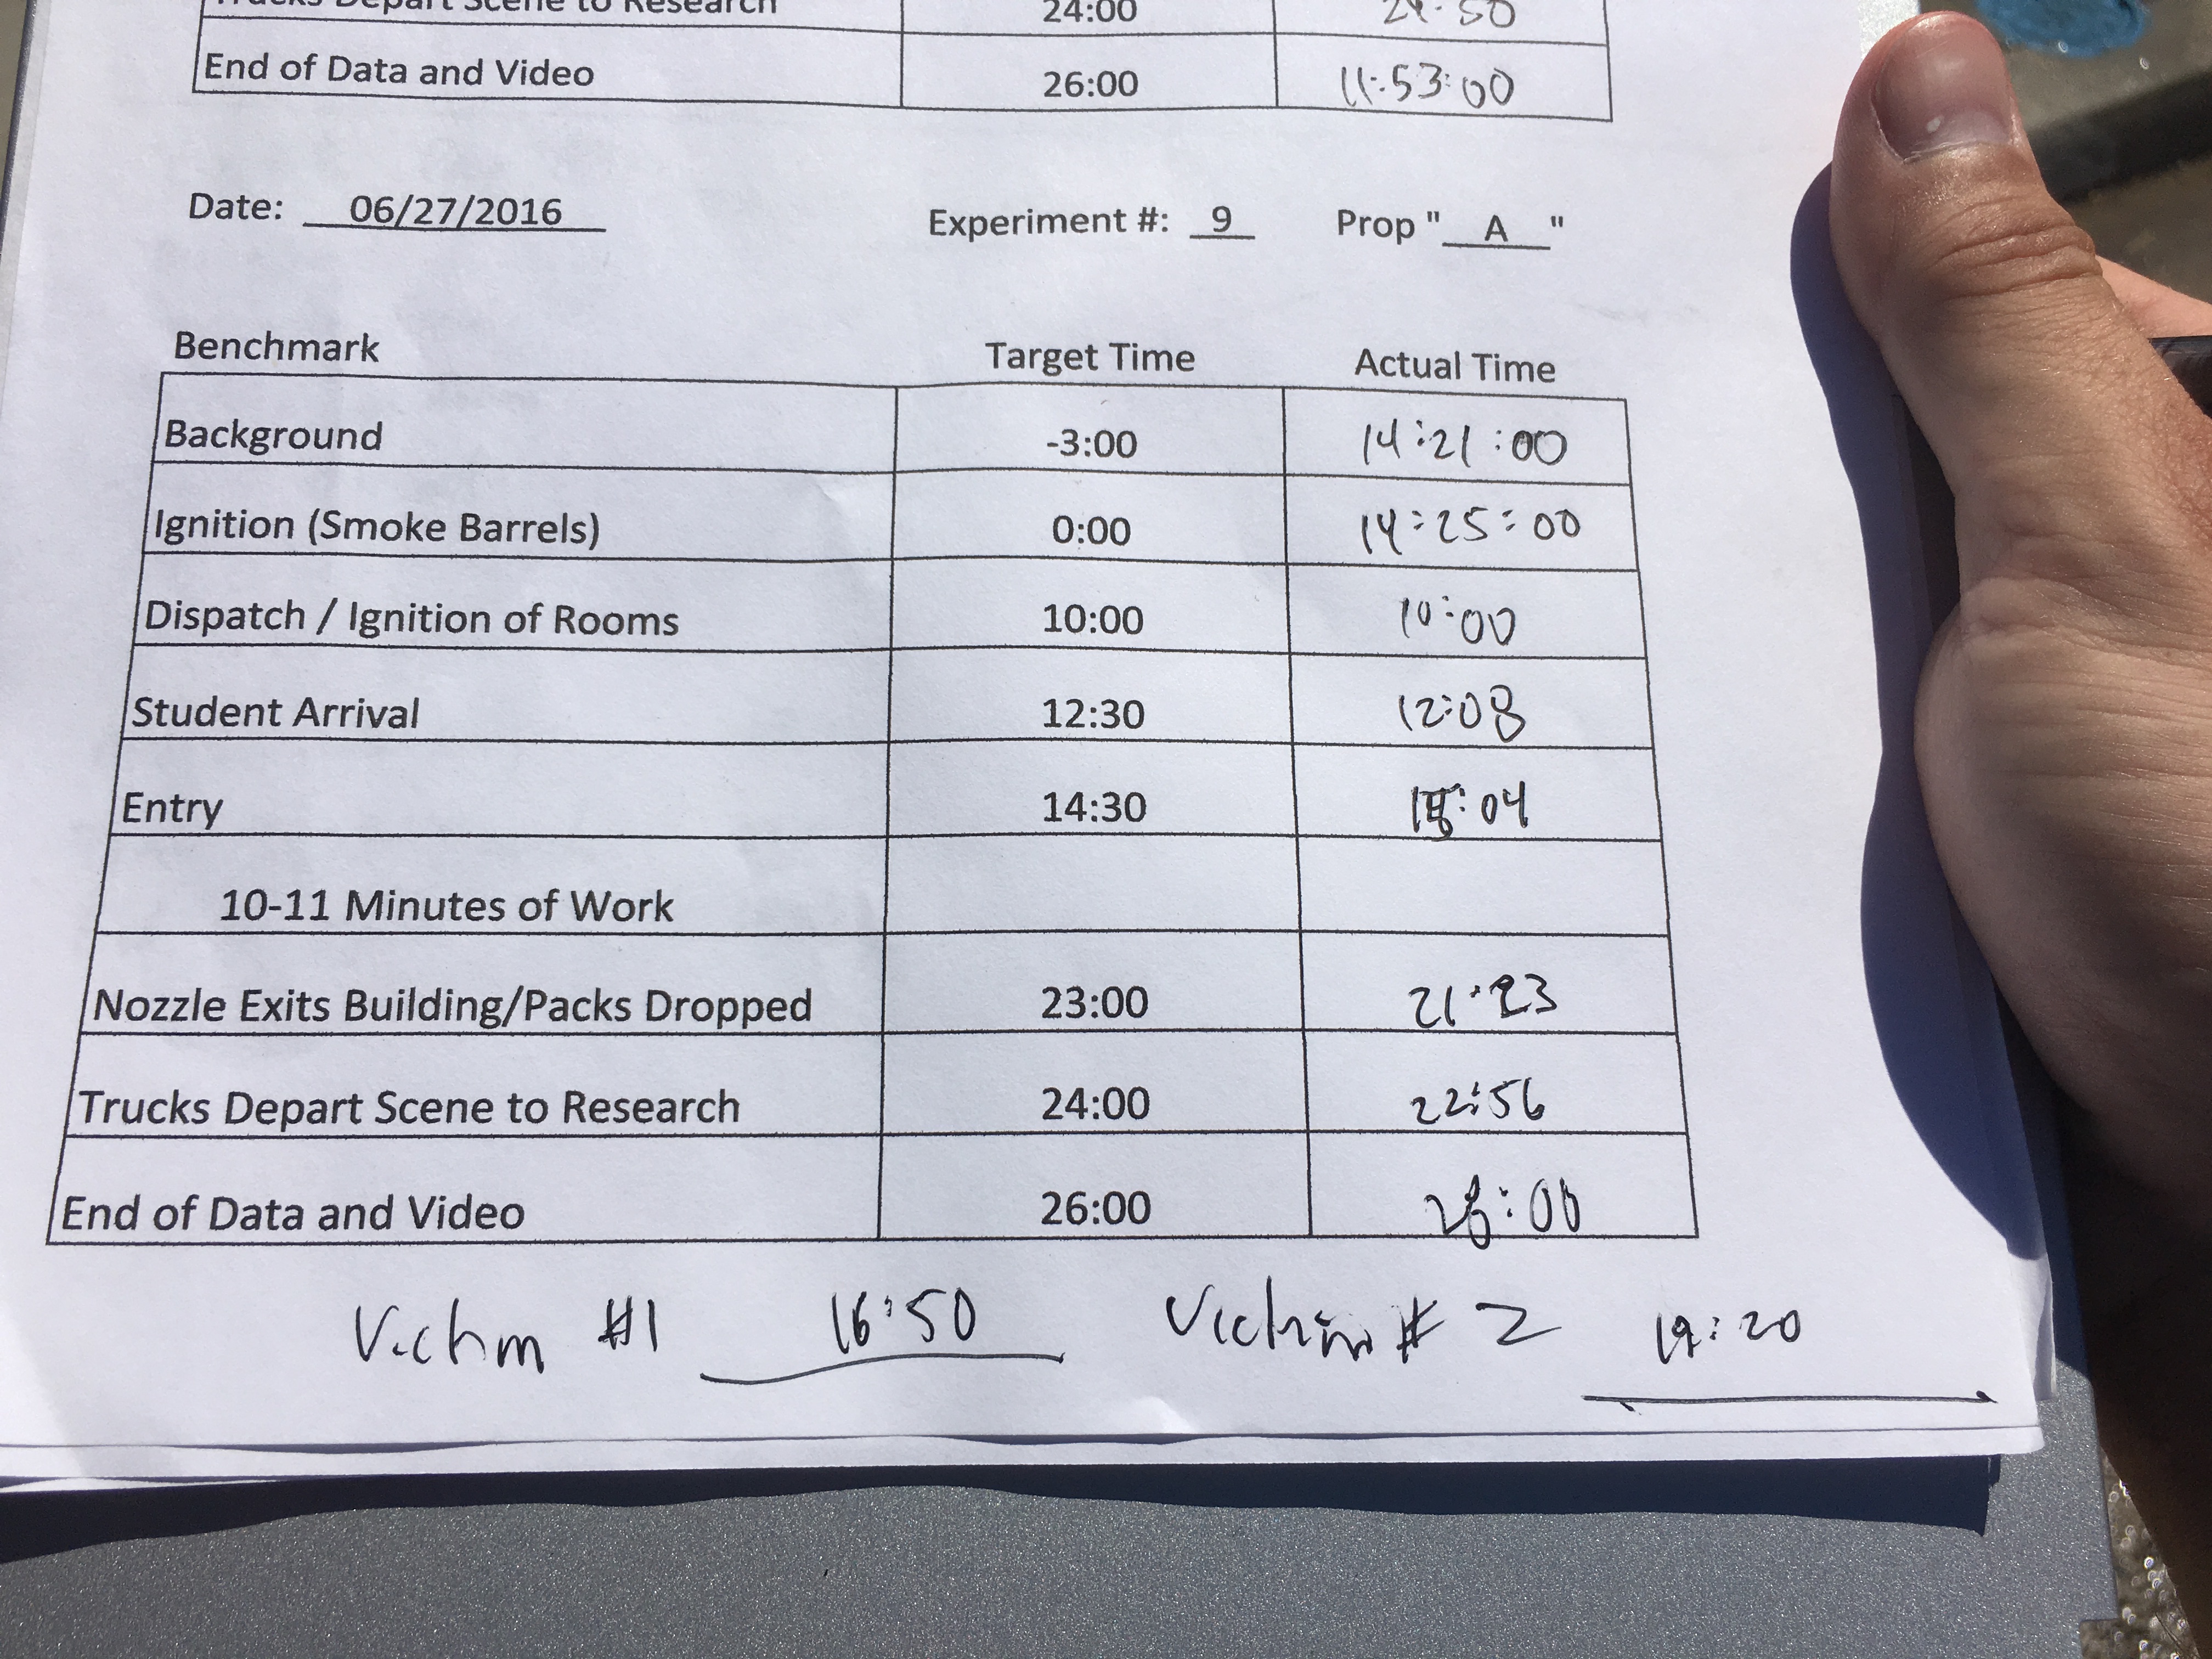 Trucks Depart Scene to Research 24:00
End of Data and Video 26:00 11:53:00
Date: 06/27/2016 Experiment #: 9 Prop " A "
Benchmark Target Time Actual Time
Background -3:00 14:21:00
Ignition (Smoke Barrels) 0:00 14:25:00
Dispatch / Ignition of Rooms 10:00 10:00
Student Arrival 12:30 12:08
Entry 14:30
10-11 Minutes of Work
Nozzle Exits Building/Packs Dropped 23:00 21:23
Trucks Depart Scene to Research 24:00 22:56
End of Data and Video 26:00
Victim #1 16:50 Victim # 2 19:20